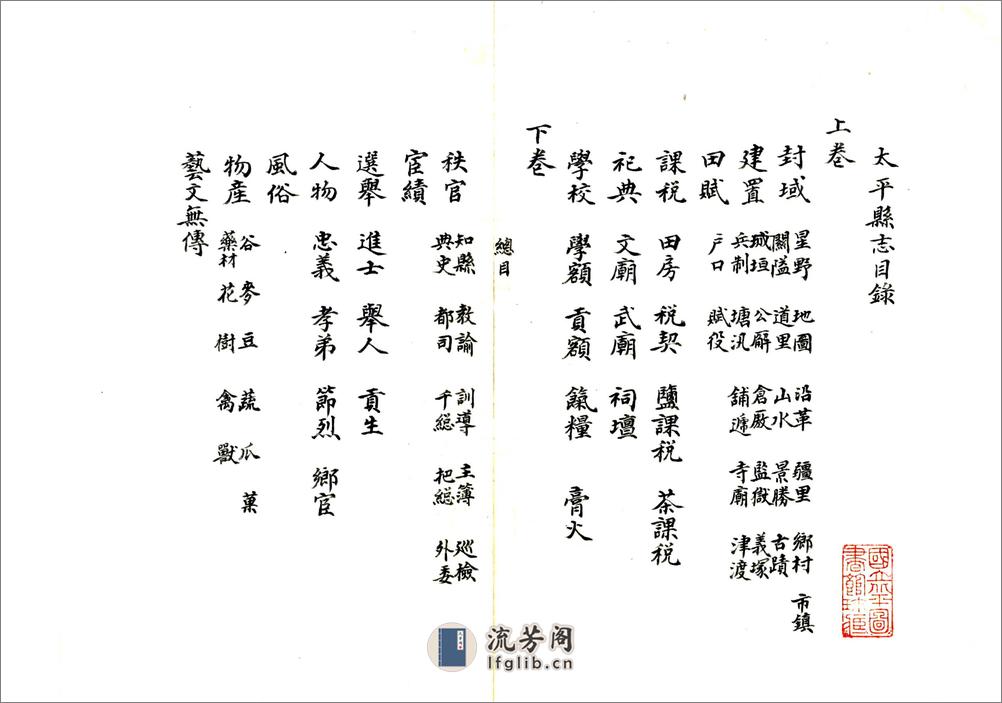 太平縣志目錄
上卷
封域 星野 地圖 沿革 疆里 鄉村 市鎮
關隘 道里 山水 景勝 古蹟
建置 城垣 公廨 倉廒 監獄 義塚
兵制 塘汛 舖遞 寺廟 津渡
田賦 户口 賦役
課税 田房 税契 鹽課税 茶課税
祀典 文廟 武廟 祠壇
學校 學額 貢額 餼糧 膏火
下卷
總目
秩官 知縣 教諭 訓導 主簿 巡檢
典史 都司 千總 把總 外委
宦績
選舉 進士 舉人 貢生
人物 忠義 孝弟 節烈 鄉宦
風俗
物産 谷 麥 豆 蔬 瓜 菓
藥材 花 樹 禽 獸
藝文無傳
國立北平圖書館珍藏
流芳阁
lfglib.cn